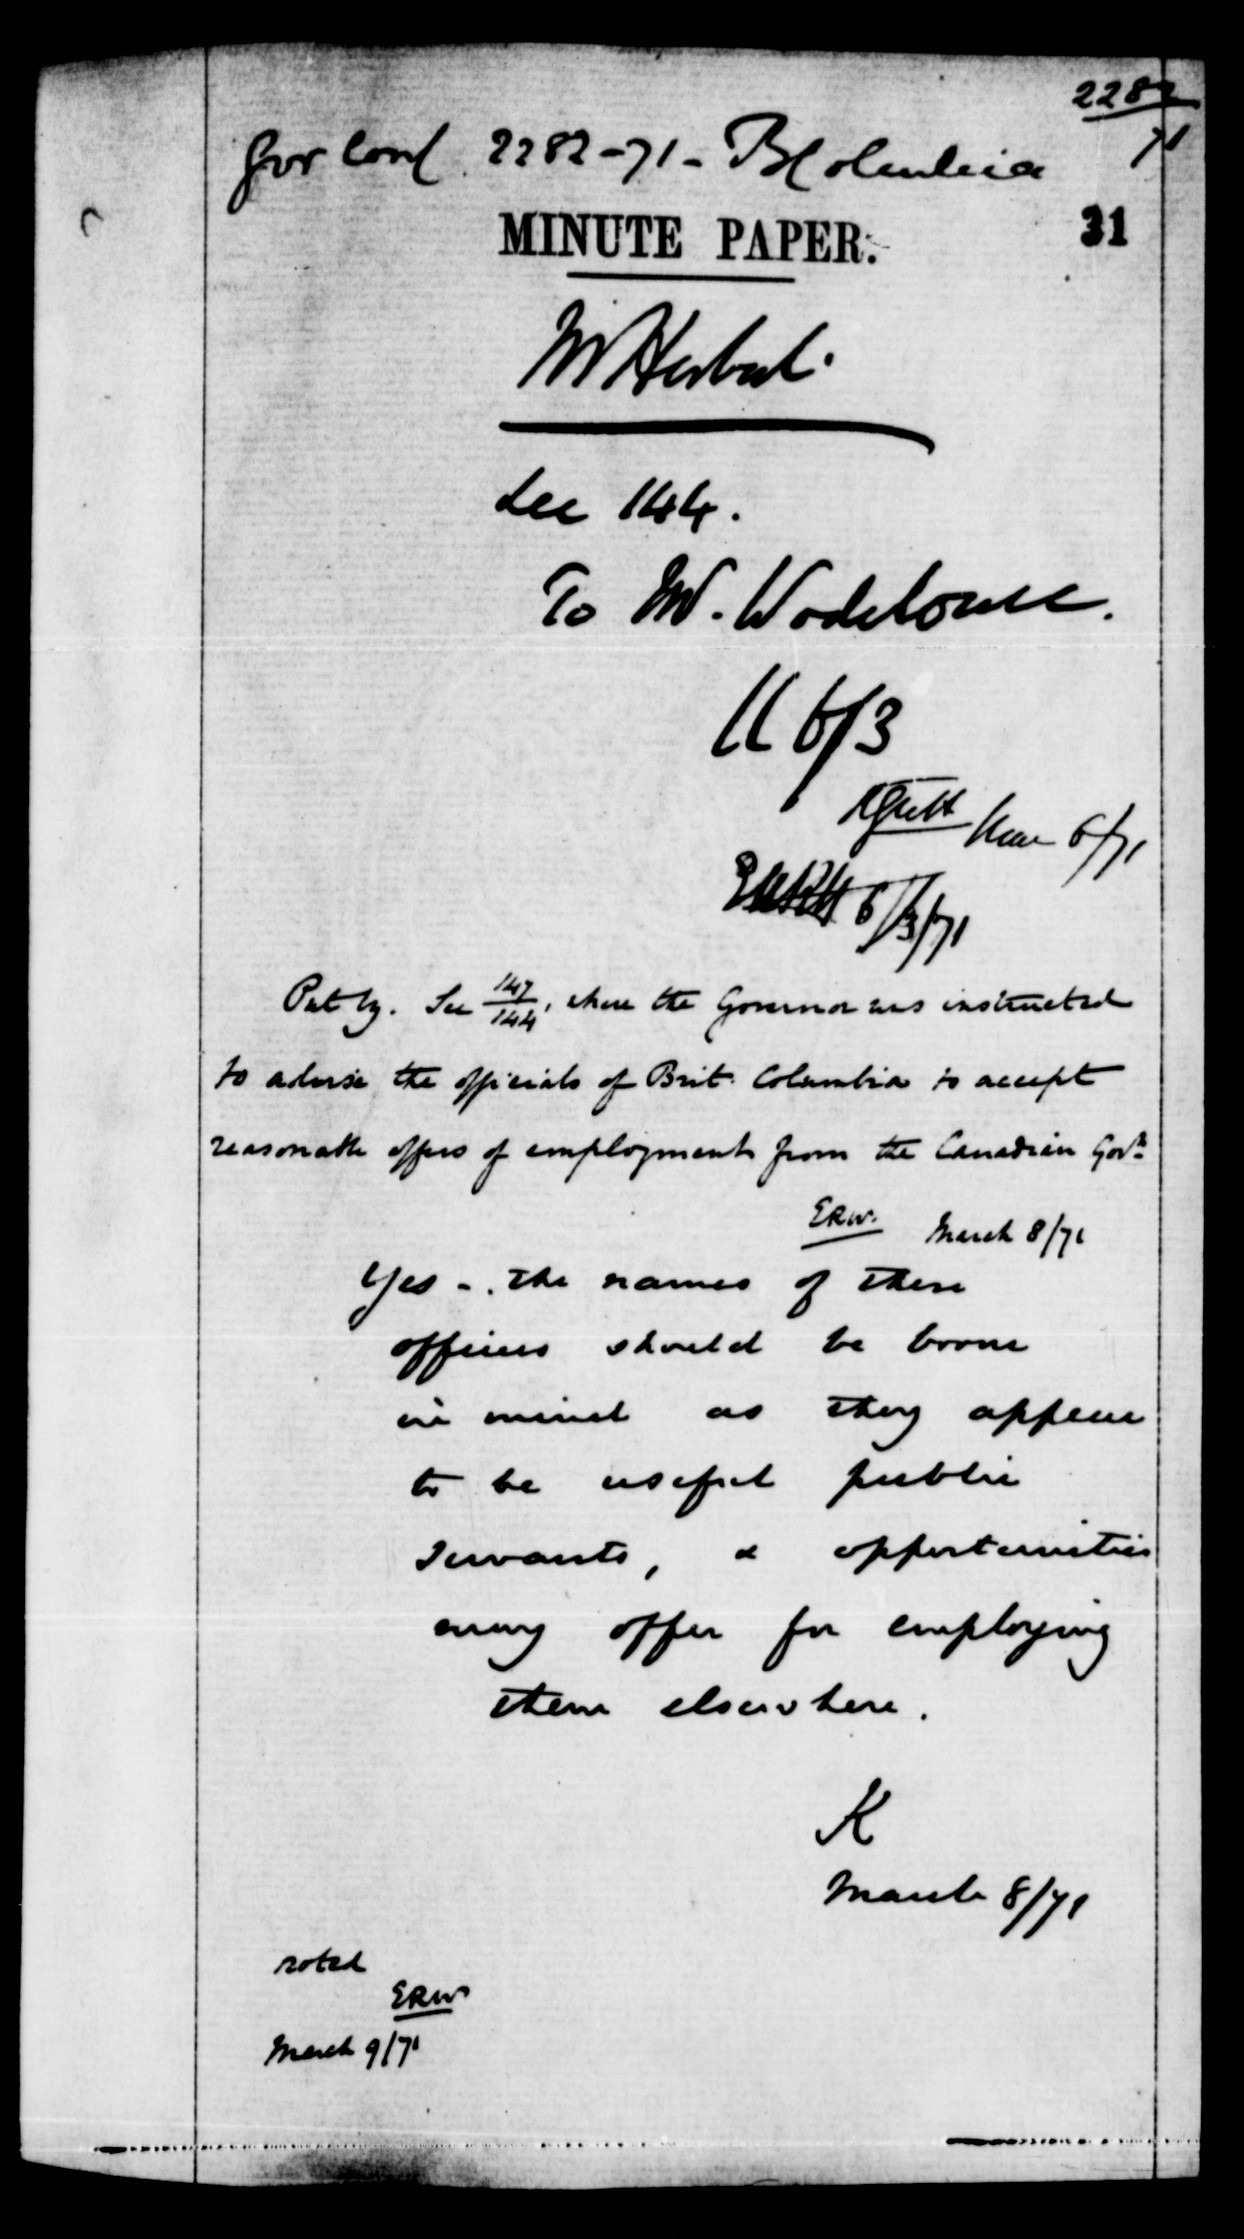 2282
71
Gov Conf 2282-71- BColumbia
31
MINUTE PAPER.
Mr Herbert.
See 144.
To Mr. Wodehouse.
CC 6/3
RGWH Mar 6/71
6/3/71
Put by. See 147/144, where the Governor was instructed
to advise the officials of Brit. Columbia to accept
reasonable offers of employment from the Canadian Govt.
ERW. March 8/71
Yes -. The names of these
officers should be borne
in mind as they appear
to be useful public
servants, & opportunities
may offer for employing
them elsewhere.
K
March 8/71
noted
ERW
March 9/71